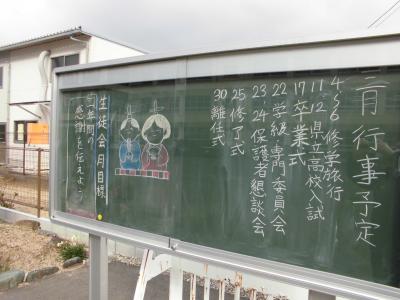 三月行事予定
4~6 修学旅行
11・12 県立高校入試
17 卒業式
22 学級・専門委員会
23・24 保護者懇談会
25 修了式
30 離任式
生徒会月目標
一年間の
感謝を伝えよう